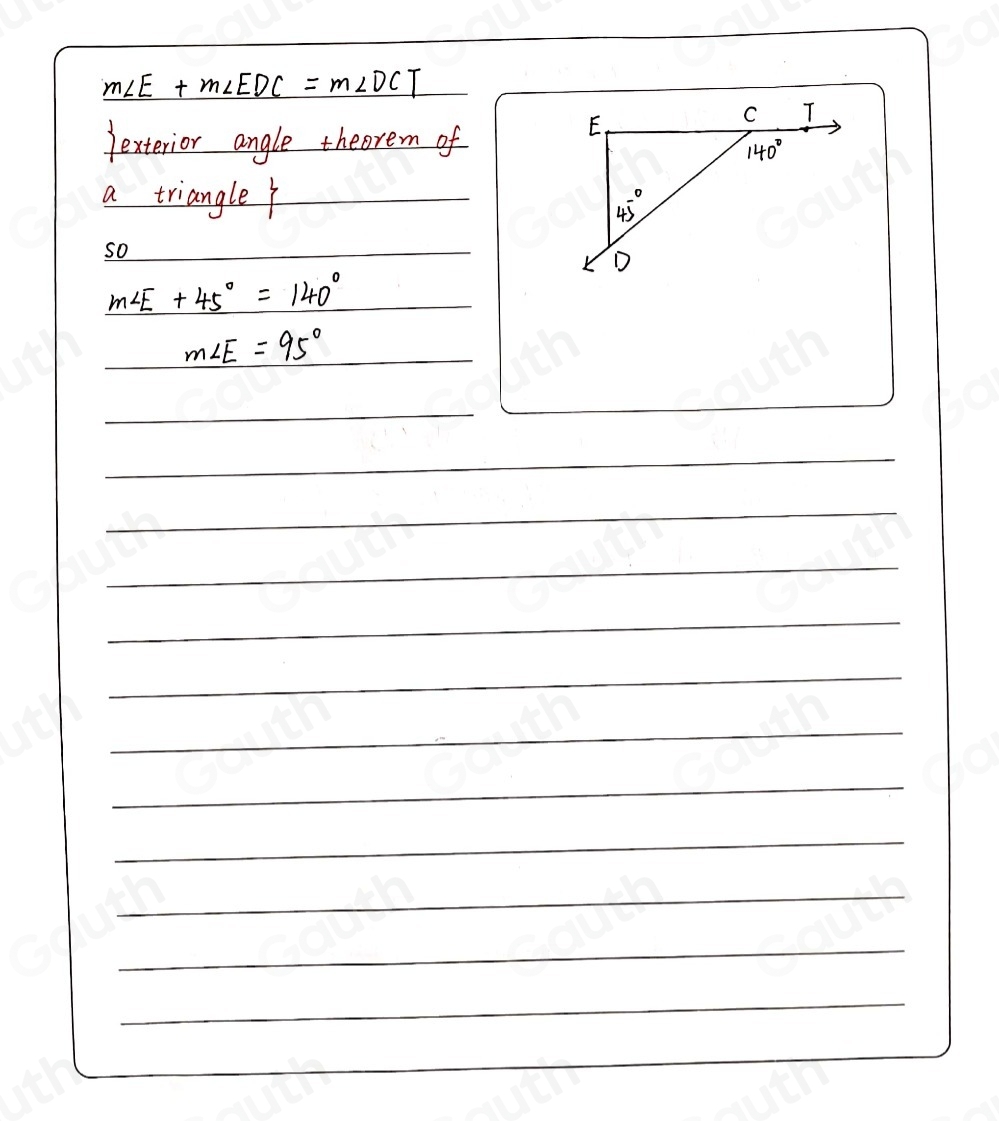 m∠E + m∠EDC = m∠DCT
}exterior angle theorem of
a triangle}
so
m∠E + 45° = 140°
m∠E = 95°
E C T
140°
45°
D